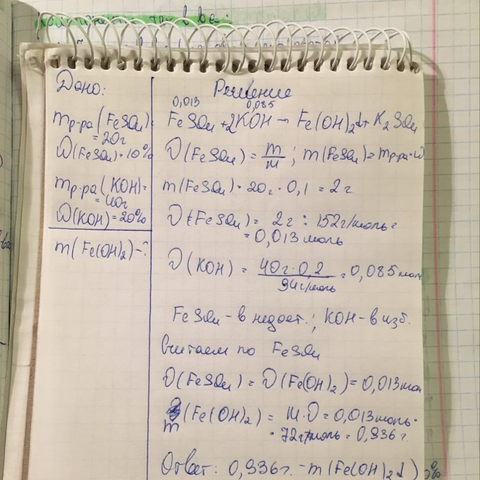 Дано:
mр-ра(FeSO₄)=
=20г
ω(FeSO₄)=10%
mр-ра(KOH)=
=40г
ω(KOH)=20%
m(Fe(OH)₂)-?
Решение
0,013 0,085
FeSO₄+2KOH → Fe(OH)₂↓+K₂SO₄
ν(FeSO₄)= m/M ; m(FeSO₄)=mр-ра·ω
m(FeSO₄)=20г·0,1=2г
ν(FeSO₄)= 2г : 152г/моль=
=0,013моль
ν(KOH)= 40г·0,2/94г/моль =0,085мол
FeSO₄-в недост.; KOH-в изб.
Считаем по FeSO₄
ν(FeSO₄)=ν(Fe(OH)₂)=0,013мол
m(Fe(OH)₂)= M·ν=0,013моль·
·72г/моль=0,936г
Ответ: 0,936г.-m(Fe(OH)₂↓)